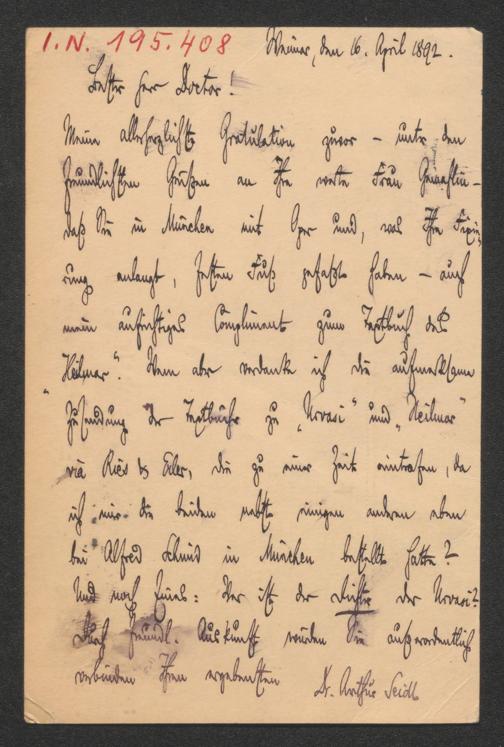 I.N. 195.408
Weimar, den 16. April 1892.
Bester Herr Doctor!
Meine allerherzlichste Gratulation zuvor – unter den
freundlichsten Grüßen an Ihre werte Frau Gemahlin –
daß Sie in München mit Oper und, was Ihre Fixie-
rung anlangt, festen Fuß gefaßt haben – auch
mein aufrichtiges Compliment zum Textbuch des
„Heilmar“. Wem aber verdanke ich die aufmerksame
Zusendung der Textbücher zu „Urvasi“ und „Heilmar“
via Ries & Erler, die zu einer Zeit eintrafen, da
ich mir die beiden nebst einigen anderen eben
bei Alfred Schmid in München bestellt hatte?
Und noch Eines: Wer ist der Dichter der Urvasi?
Durch freundl. Auskunft würden Sie außerordentlich
verbinden Ihren ergebensten
Dr. Arthur Seidl